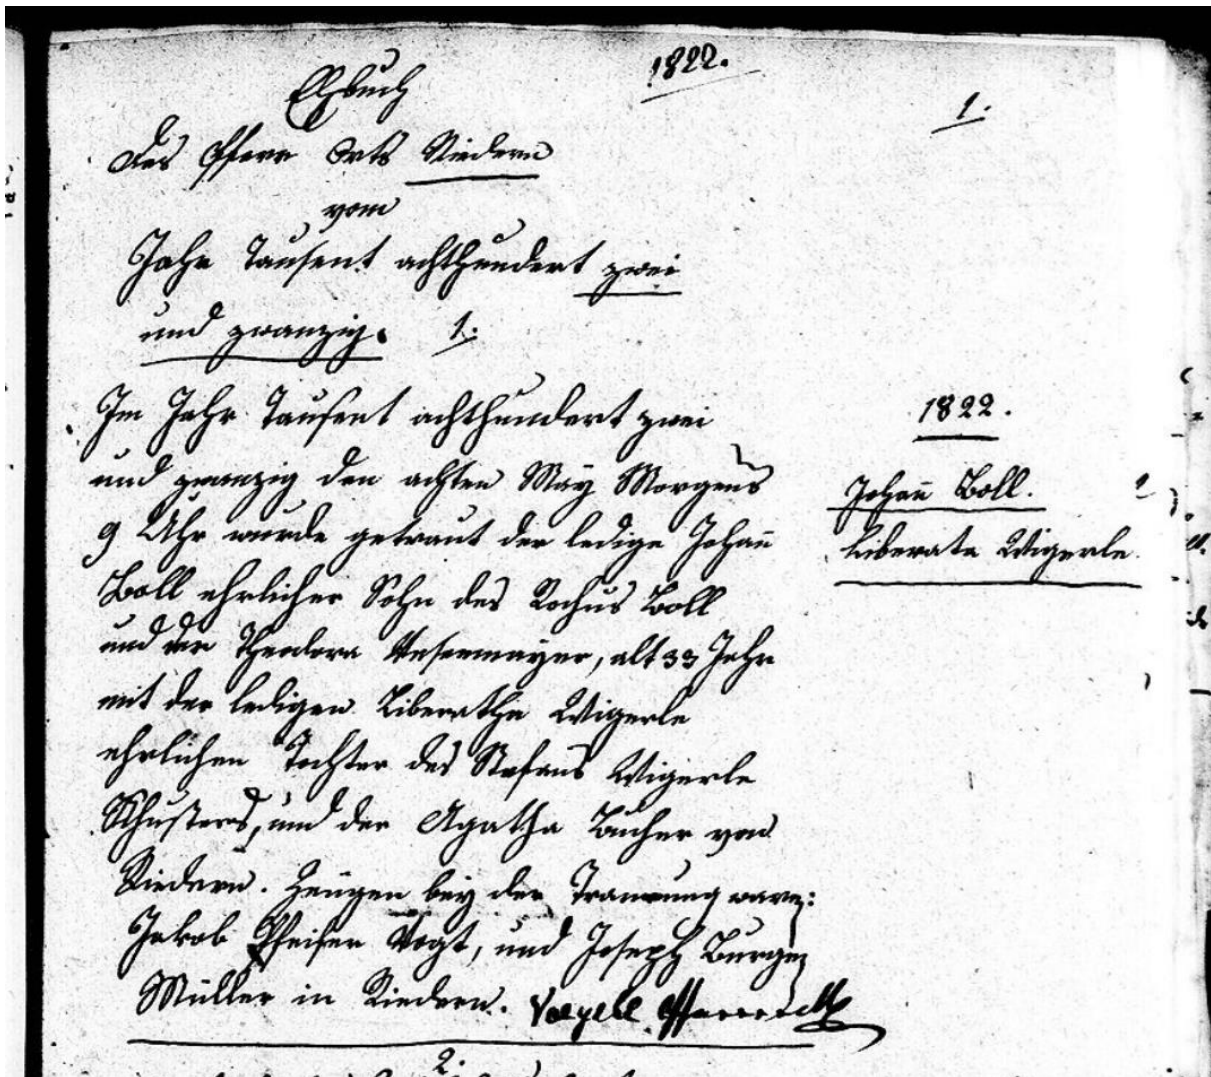 1822.
Ehebuch
1.
des Pfarr Orts Riedern
vom
Jahr Tausent achthundert zwei
und zwanzig. 1.
Im Jahr Tausent achthundert zwei
und zwanzig den achten May Morgens
9 Uhr wurde getraut der ledige Johañ
Boll ehrlicher Sohn des Rochus Boll
und der Theodora, alt 33 Jahr
mit der ledigen Liberatha Wigerle
ehrlichen Tochter des Stefans Wigerle
Schusters, und der Agatha Bucher von
Riedern. Zeugen bey der Trauung waren:
Jakob Pfeifer Vogt, und Joseph Burger
Müller in Riedern.
1822.
Johañ Boll.
Liberata Wigerle.
2.